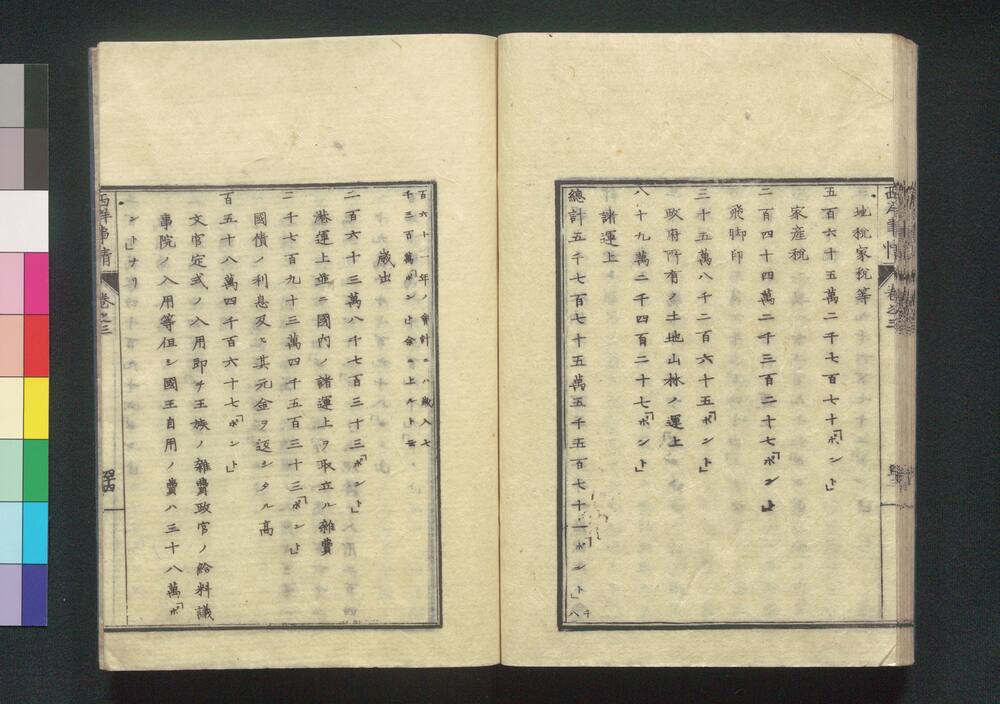 西洋事情 卷之三
地税家税等
五百六十五萬二千七百七十「ポンド」
家産税
二百四十四萬二千三百二十七「ポンド」
飛脚印
三十五萬八千二百六十五「ポンド」
政府所有ノ土地山林ノ運上
八十九萬二千四百二十七「ポンド」
諸運上
總計五千七百七十五萬五千五百七十一「ポンド」千八
百六十一年ノ會計ニハ歳入七
千二百萬「ポンド」余ニ上ルト云
歳出
二百六十三萬八千七百三十三「ポンド」
港運上並ニ國内ノ諸運上ヲ取立ル雜費
二千七百九十三萬四千五百三十三「ポンド」
國債ノ利息及ヒ其元金ヲ返シタル高
百五十八萬四千百六十七「ポンド」
文官定式ノ入用即チ王族ノ雜費政官ノ給料議
事院ノ入用等但シ國王自用ノ費ハ三十八萬「ポ
ンド」ナリ
西洋事情 卷之三